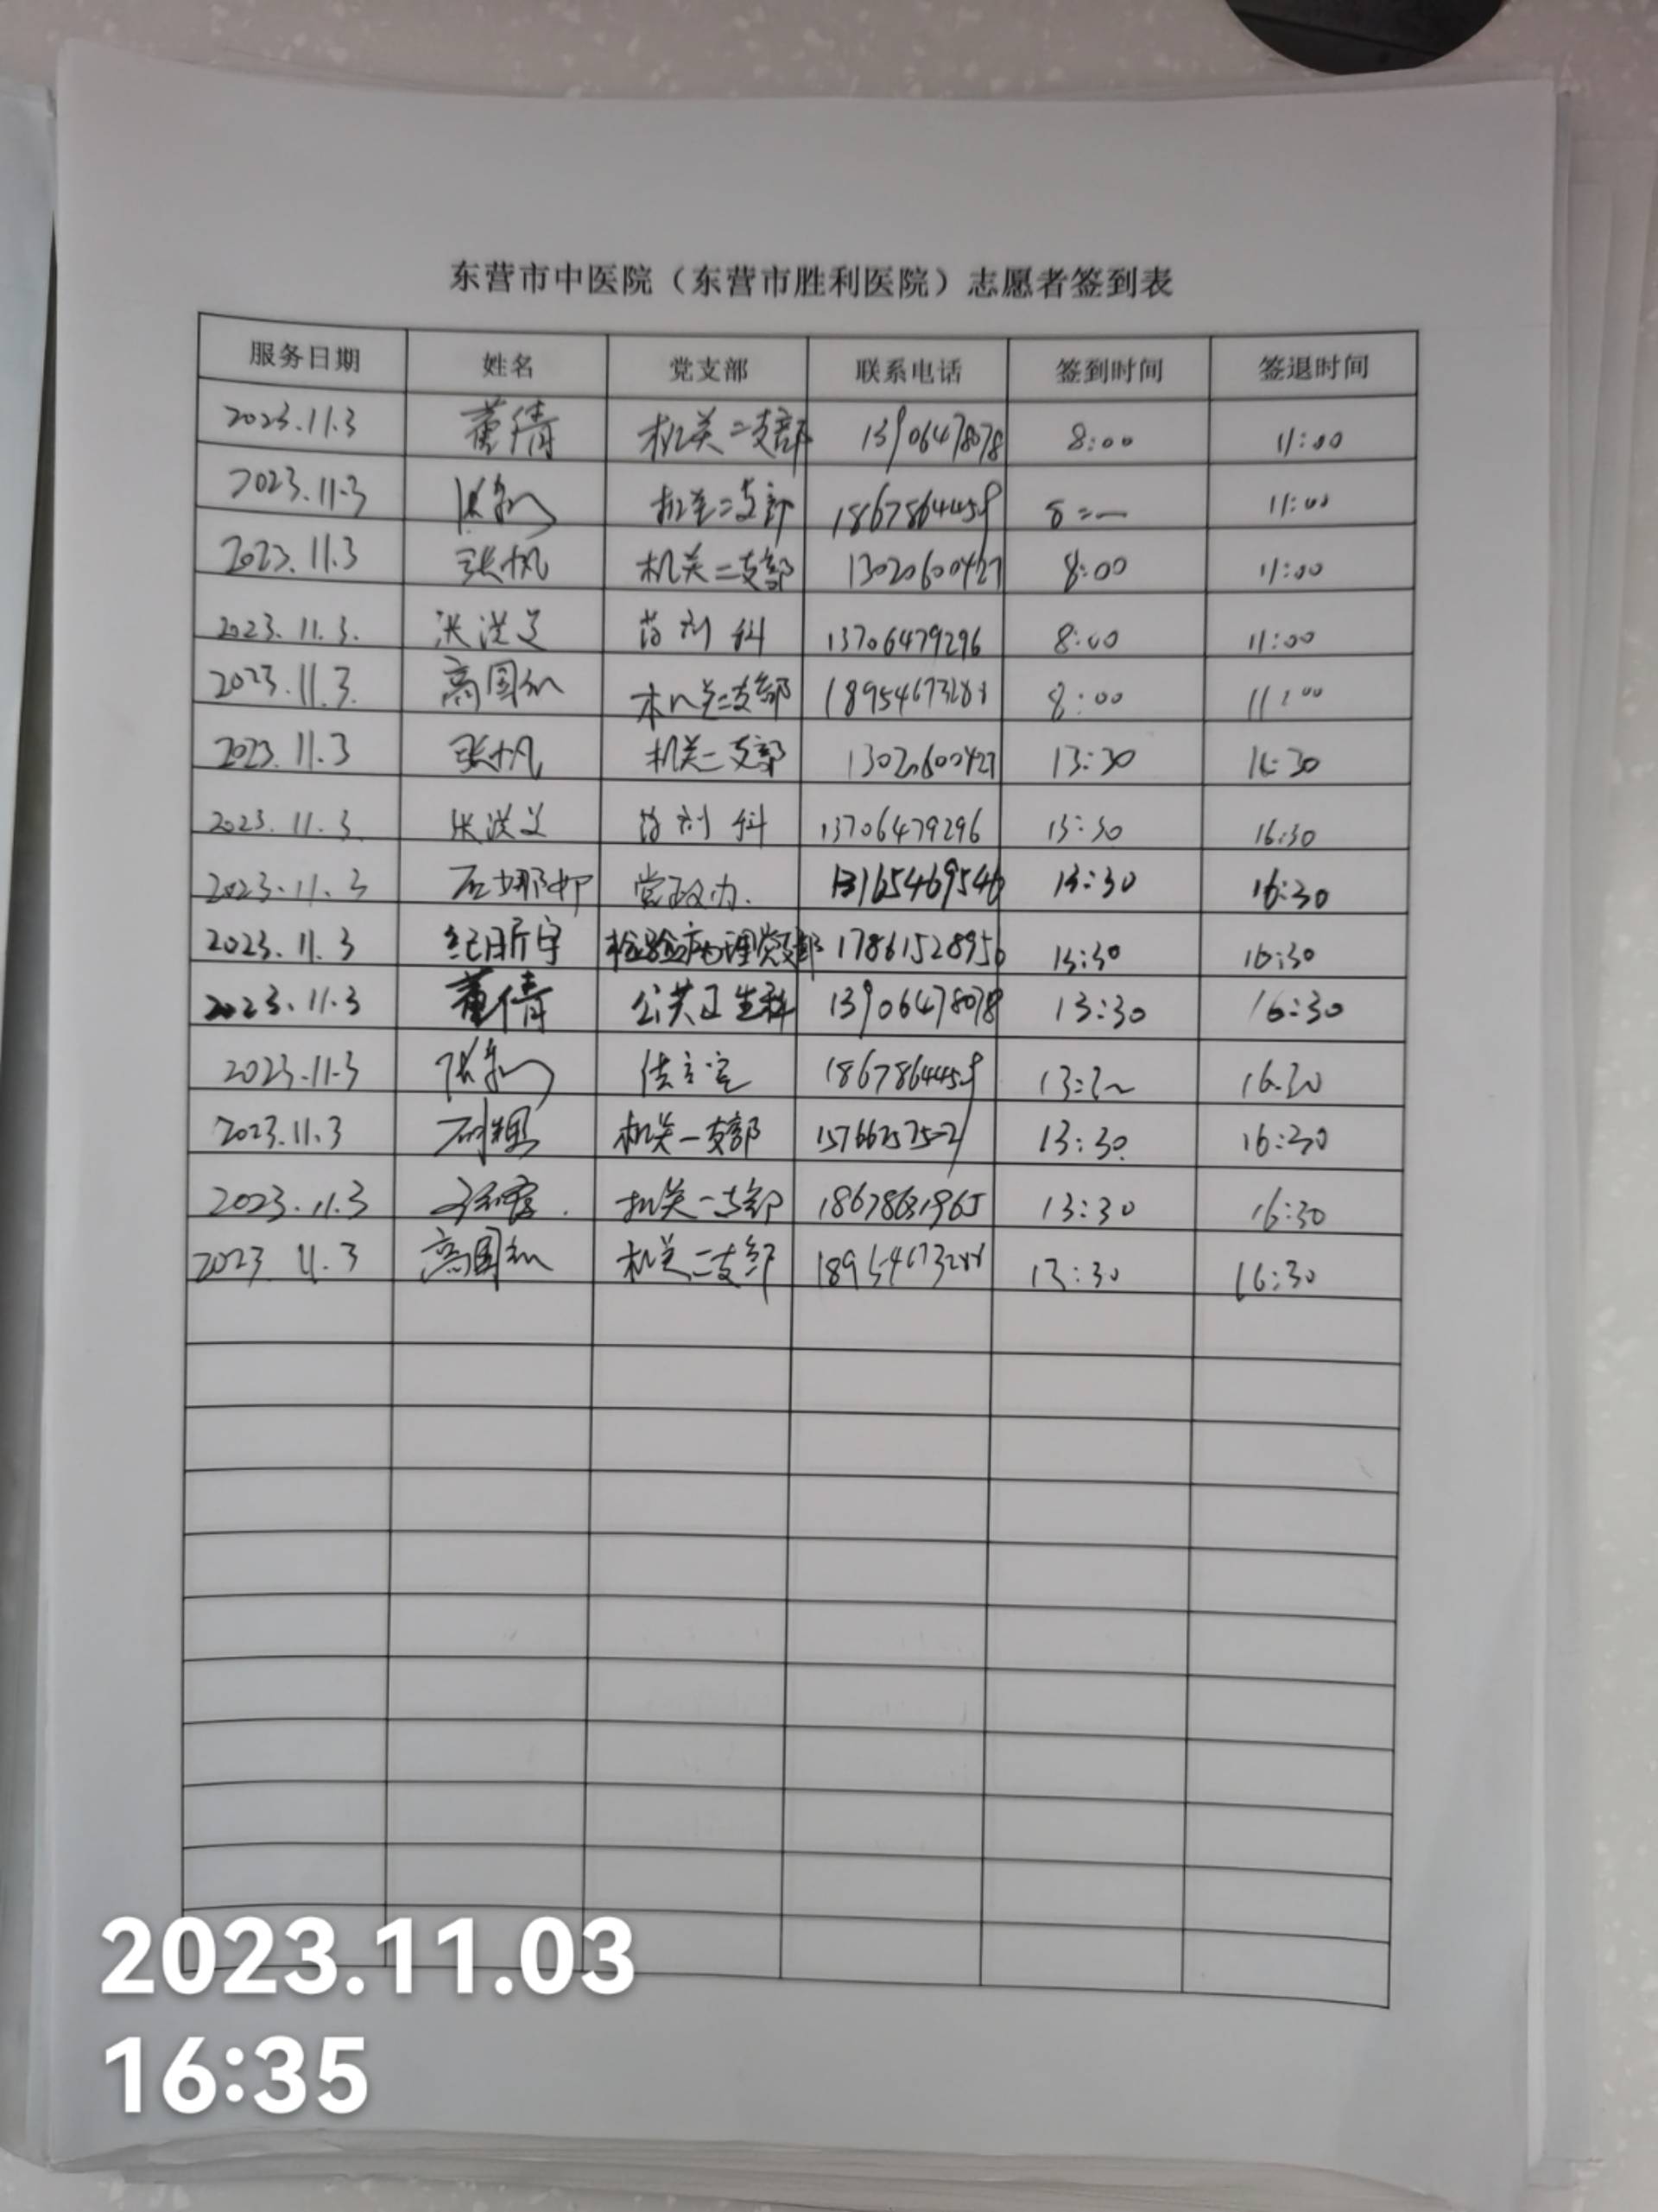 东营市中医院（东营市胜利医院）志愿者签到表
服务日期 姓名 党支部 联系电话 签到时间 签退时间
2023.11.3 董倩 机关二支部 13906478078 8:00 11:00
2023.11.3 机关二支部 18678644459 11:00
2023.11.3 张帆 机关二支部 13020600427 8:00 11:00
2023.11.3. 张洪文 药剂科 13706479296 8:00 11:00
2023.11.3. 高国 机关二支部 8:00 11:00
2023.11.3 张帆 机关二支部 13020600427 13:30 16:30
2023.11.3 张洪文 药剂科 13706479296 13:30 16:30
2023.11.3 党政办. 13165469546 13:30 16:30
2023.11.3 纪昕宇 检验病理党支部 17861528956 13:30 16:30
2023.11.3 董倩 公共卫生科 13906478078 13:30 16:30
2023.11.3 18678644459 16:30
2023.11.3 机关一支部 13:30 16:30
2023.11.3 机关一支部 18678631965 13:30 16:30
2023.11.3 高国 机关二支部 13:30 16:30
2023.11.03
16:35